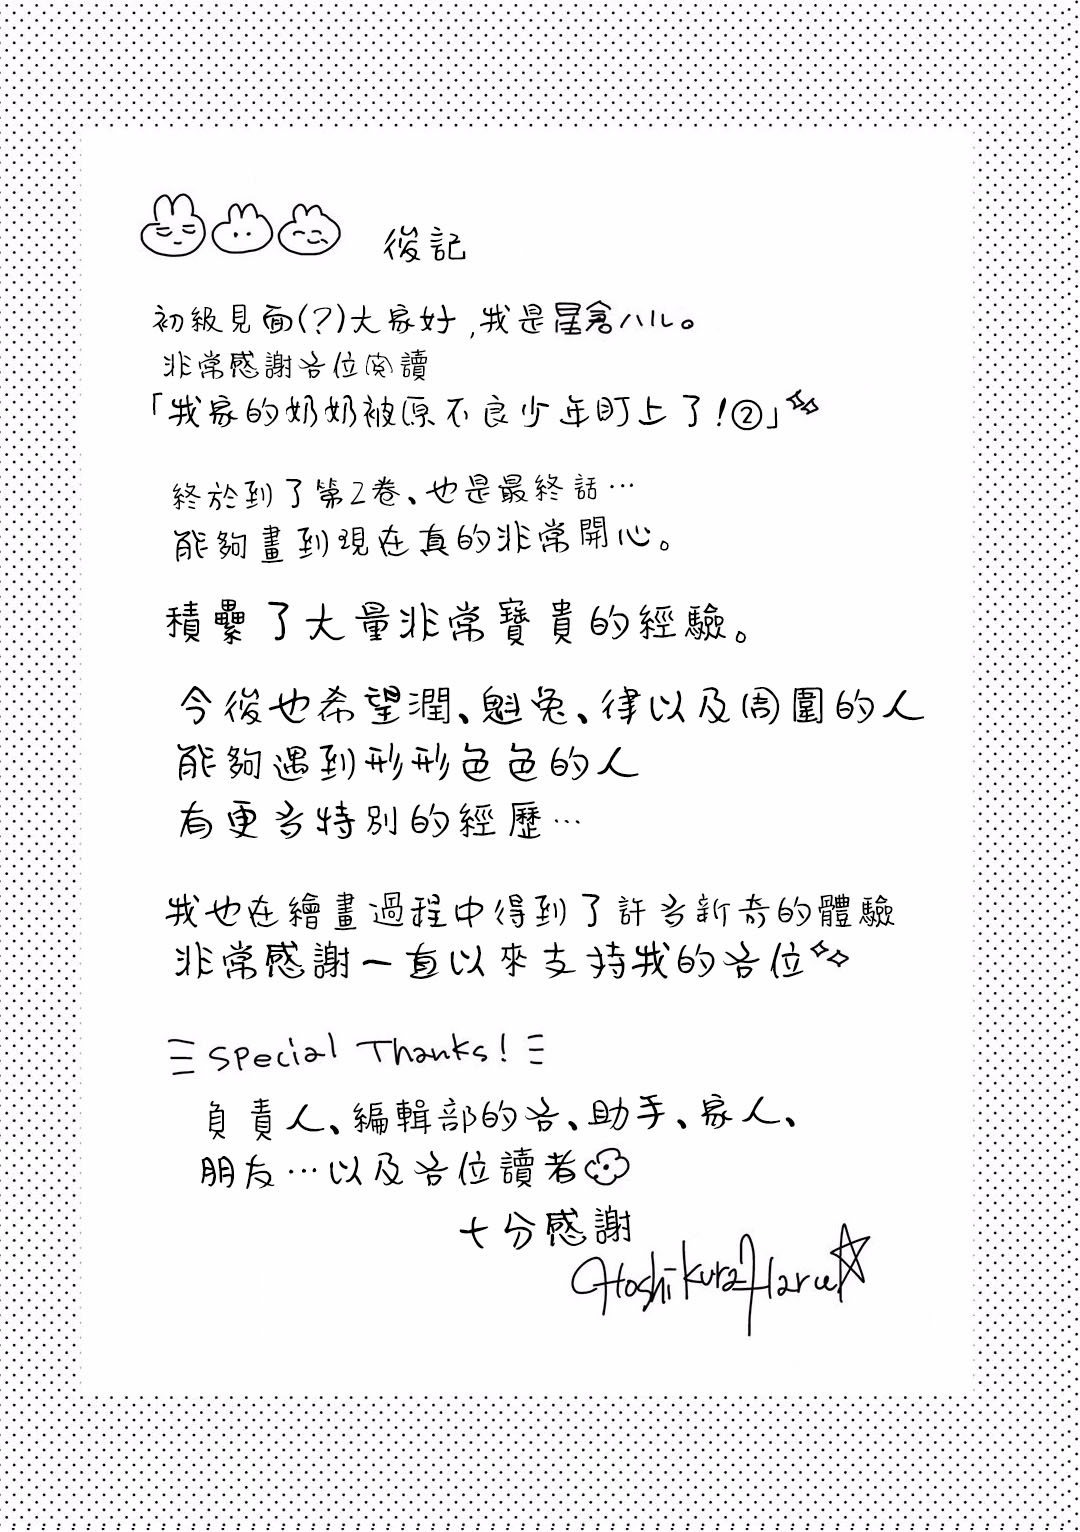 後記
初級見面(?)大家好,我是星倉ハル。
非常感謝各位閱讀
「我家的奶奶被原不良少年盯上了!②」
終於到了第2卷、也是最終話…
能夠畫到現在真的非常開心。
積纍了大量非常寶貴的經驗。
今後也希望潤、魁兔、律以及周圍的人
能夠遇到形形色色的人
有更多特別的經歷…
我也在繪畫過程中得到了許多新奇的體驗
非常感謝一直以來支持我的各位
Special Thanks!
負責人、編輯部的各、助手、家人、
朋友…以及各位讀者
十分感謝
Hoshikura Haru